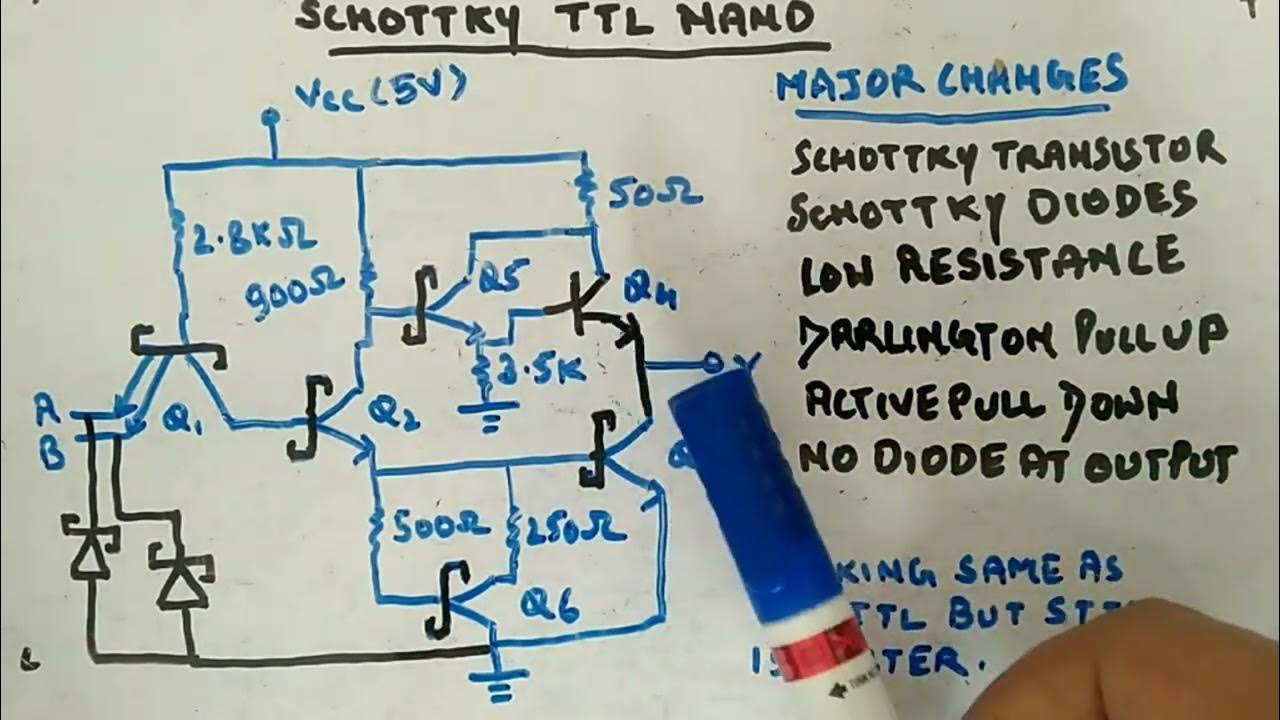 SCHOTTKY TTL NAND
VCC (5V)
MAJOR CHANGES
SCHOTTKY TRANSISTOR
SCHOTTKY DIODES
LOW RESISTANCE
DARLINGTON PULL UP
ACTIVE PULL DOWN
NO DIODE AT OUTPUT
50Ω
2.8KΩ
900Ω
Q5
Q4
3.5K
Y
A
B
Q1
Q2
500Ω
250Ω
Q6
KING SAME AS
TTL BUT